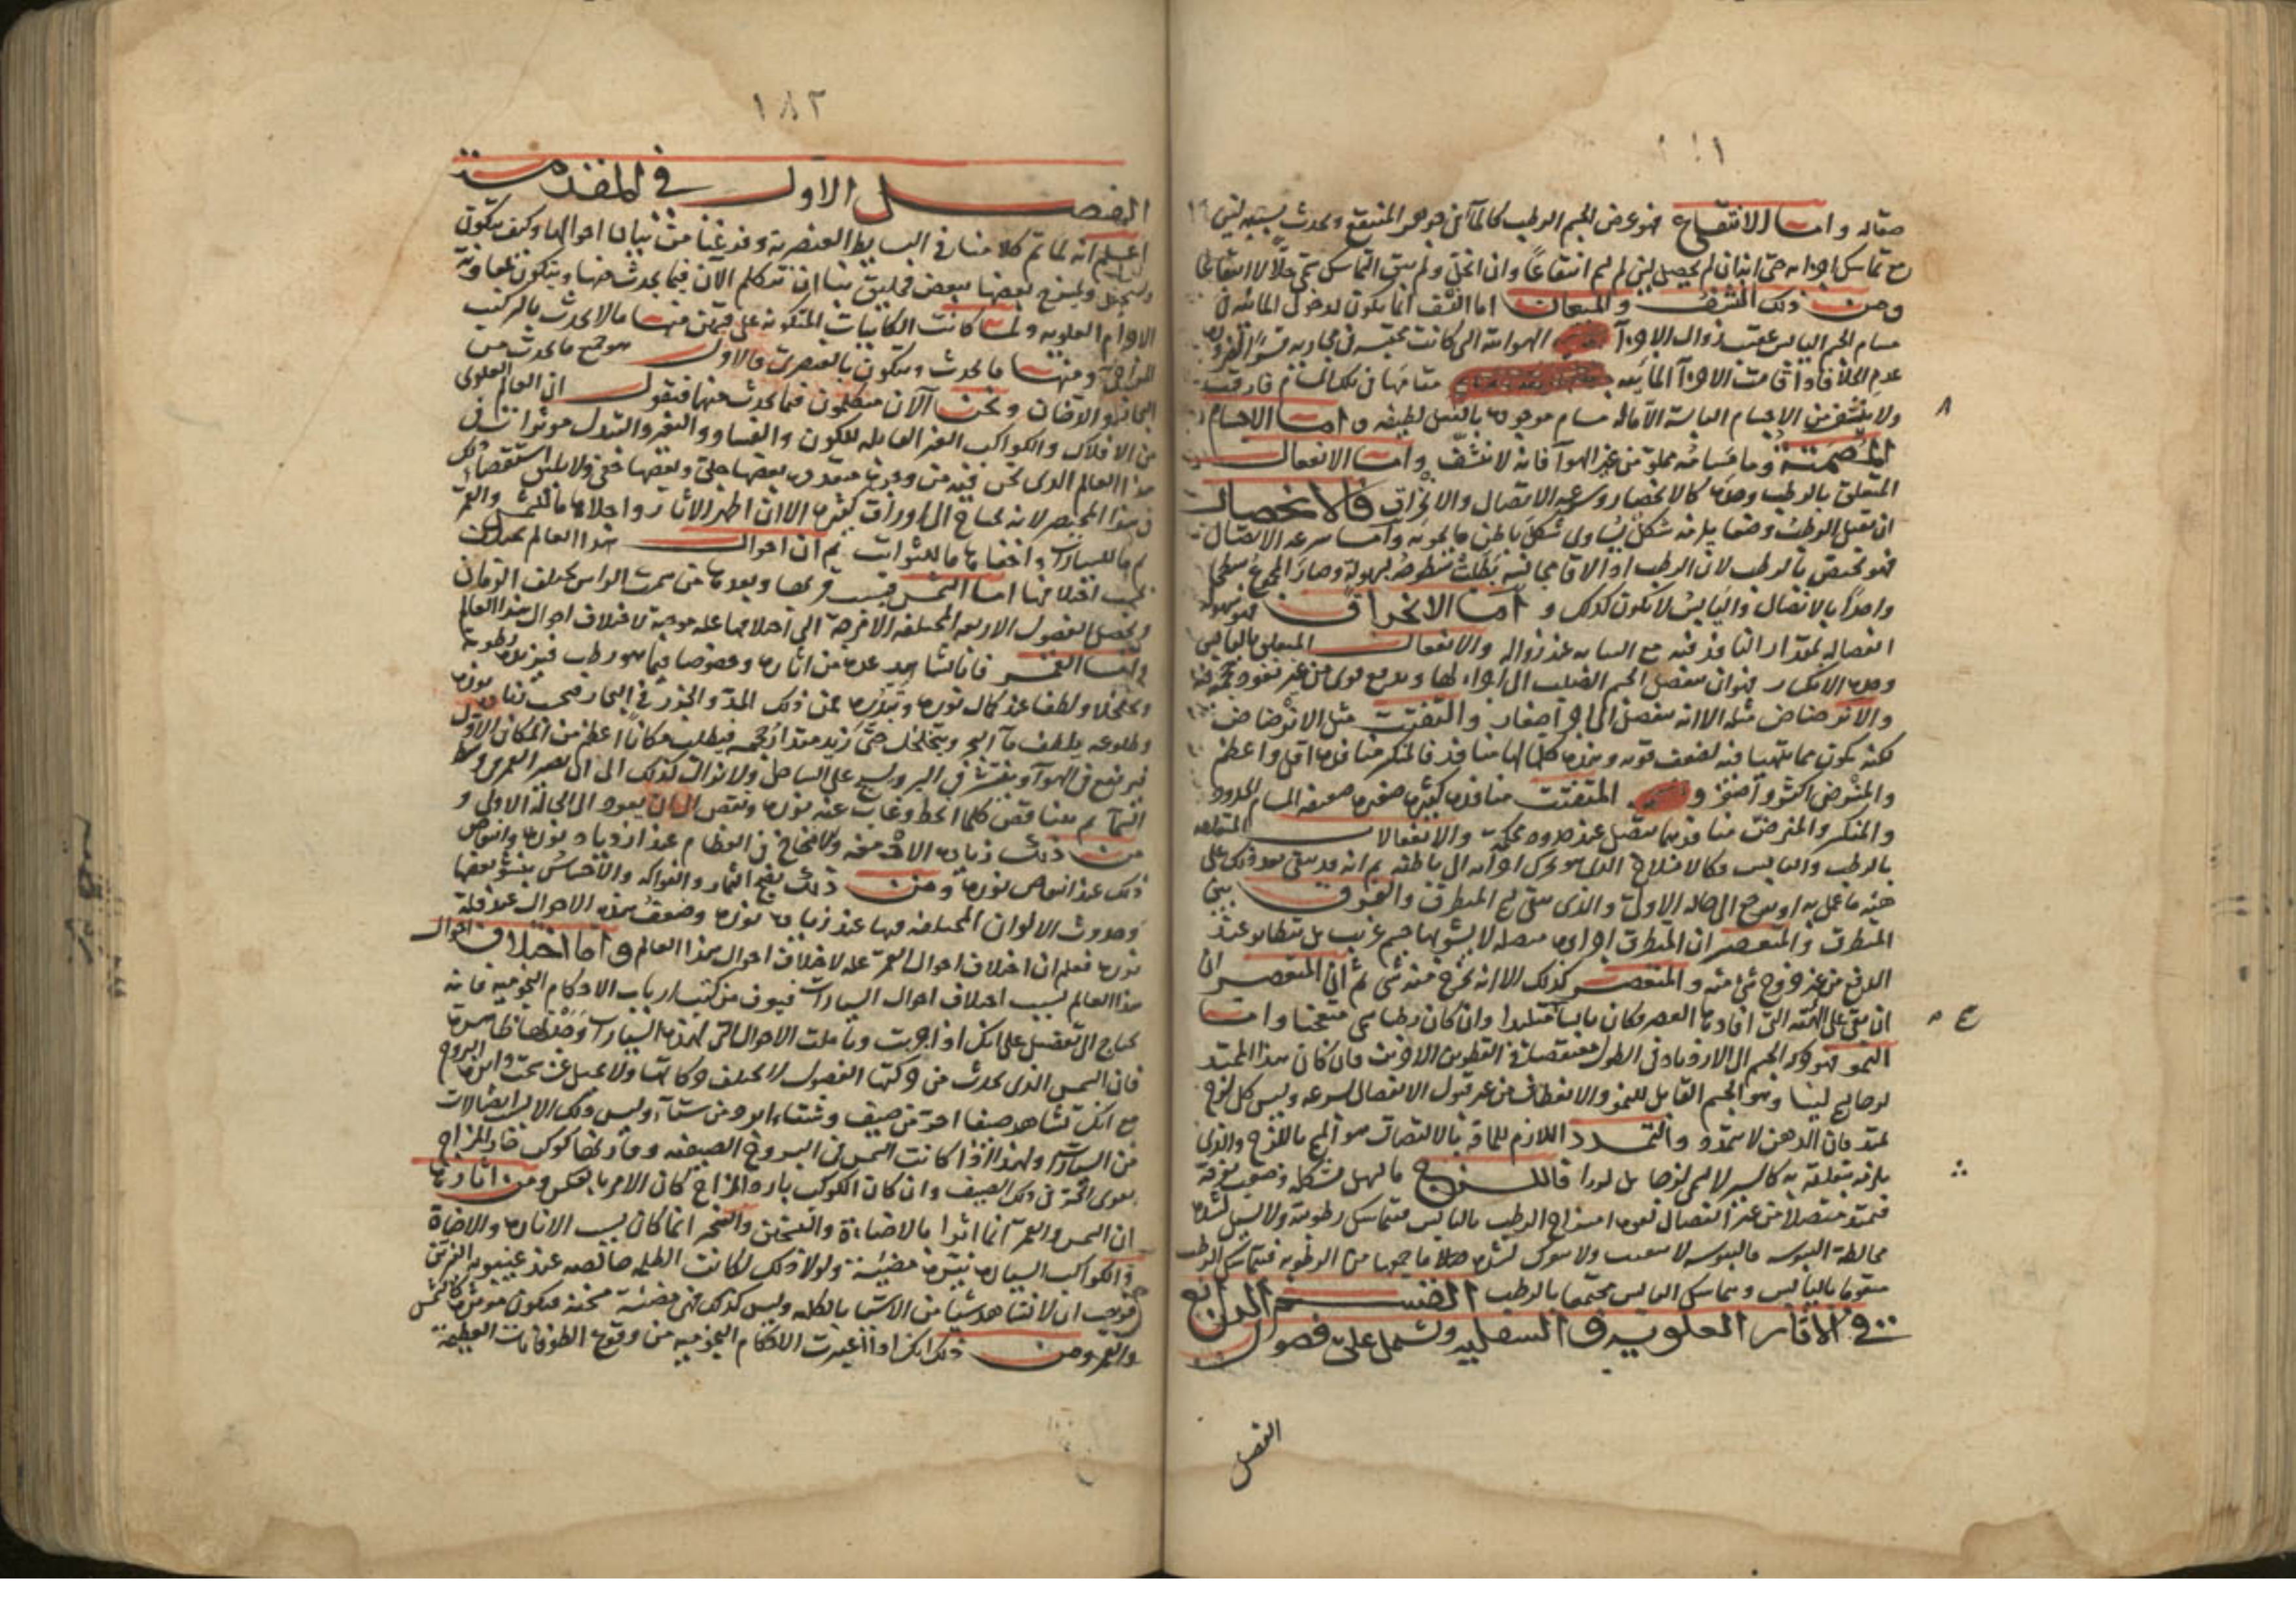 صقاله واما الانتقاع فهو غوص الجسم الرطب كالمآ في جوهر المنتقع ويحدث بسببه لين
مع تماسك اجزايه حتى انه ان لم يحصل لين لم يسم انتقاعاً وان انحل ولم يبق التماسك سمي حلاً لا انتقاعا
ومن ذلك النشف والميعان اما النشف انما يكون لدخول المائية في
مسام الجسم اليابس عقيب زوال الاجزآ الهوائية التي كانت محتبسة في مجاريه
عدم الخلا فاذا قامت الاجزآ المائيه مقامها في تلك المسام فارقت
ولا ينشف من الاجسام اليابسة الا ماله مسام موجوده بالفعل لطيفه واما الاجسام
المصمتة وما مسامه مملوة من غير الهوآ فانه لا ينشف واما الانفعال
المتعلق بالرطب وحده كالانحصار وسرعه الاتصال والانخراق فالانحصار
ان يقبل الرطب وضعا يلزمه شكل يساوي شكل باطن ما يحويه واما سرعه الاتصال
فهو مختص بالرطب لان الرطب اذا لاقا مجانسه بطلت سطوحه بسهولة وصار المجموع سطحا
واحداً بالاتصال واليابس لا يكون كذلك و اما الانخراق فهو سهولة
انفصاله بمقدار النافذ فيه مع التيامه عند زواله والانفعال المتعلق باليابس
وحده الانكسار فهو ان ينفصل الجسم الصلب الى اجزاء لها
والانرضاض مثله الا انه ينفصل الى اجزآ صغار والتفتت مثل الانرضاض
لكنه يكون مما يتهيا فيه لضعف قوته وهذه كلها لها منافذ فالمنكسر منافذه اقل واعظم
والمنرض اكثر واصغر و المتفتت منافذه كثيره صغيره ضعيفه المسام الحدود
والمنكسر والمنرض منافذهما تتصل عند حدود محكمة والانفعالات المتعلقه
بالرطب واليابس فكالانثلاخ الذي هو تحرك اجزآيه الى باطنه ثم انه قد يبقى بعد ذلك على
هيئة ما عمل به او يرجع الى حاله الاول والذي يبقى سمي المنطرق والفرق بين
المنطرق والمنعصر ان المنطرق اجزاوه متصله لا يشوبها جسم غريب بل يتطامن عند
الدفع من غير خروج شي منه والمنعصر كذلك الا انه يخرج منه شي ثم ان المنعصر ان
ان بقي على الهيئة التي افادها العصر وكان يابسا سمي متلبدا وان كان رطبا سمي منعجنا واما
النمو فهو حركة الجسم الى الازدياد في الطول منتقصا في القطرين الاخرين فان كان هذا الممتد
لوحا سمي لينا وهو الجسم القابل للنمو والانعطاف من غير قبول الانفصال بسرعه وليس كل لزج
يمتد فان الدهن لا يتمدد والتمدد اللازم للملاقي بالالتصاق هو المسمى باللزج والذي
يلزمه بتعلقه به كالسير لا يسمى لزجا بل لدنا فاللزج ما يسهل تشكله ويصعب تفرقه
فيمتد متصلاً من غير انفصال لقوة امتزاج الرطب باليابس فتماسك رطوبته ولا يسيل لشدة
مخالطة اليبوسه فاليبوسه لا تتفتت ولا تتفرك لشدة ما جمعها من الرطوبة فيتماسك الرطب
متقوما باليابس ويتماسك اليابس مجتمعا بالرطب القسم الرابع
في الاثار العلويه والسفليه ويشتمل على فصول
الفصل
١٨٢
الفصل الاول في المقدمة
اعلم انه لما تم كلامنا في البسايط العنصرية وفرغنا من تبيان احوالها وكيف يتكون
ويستحيل ويمتزج بعضها ببعض فخليق بنا ان نتكلم الآن فيما يحدث منها ويتكون بمعاونة
الاجرام العلويه ولما كانت الكاينات المتكونة على قسمين منها ما لا يحدث بالتركيب
المزاجي ومنها ما يحدث ويتكون بالعنصري والاول هو جميع ما يحدث من
البخار والدخان ونحن الآن متكلمون فيما يحدث منهما فنقول ان العالم العلوي
من الافلاك والكواكب الغير القابله للكون والفساد والتغير والتبدل موثرات في
هذا العالم الذي نحن فيه من وجوه متعددة بعضها جلي وبعضها خفي ولا يليق استقصاء تلك
في هذا المختصر لانه يحتاج الى اوراق كثيره الا ان اظهر الاثار واجلاها ما للشمس والقمر
ثم ما للسيارات واخفاها ما للثوابت ثم ان احوال هذا العالم تختلف
بحسب اختلافها اما الشمس فبسبب قربها وبعدها من سمت الراس يختلف الزمان
ويحصل الفصول الاربعه المختلفه الامزجة التي اختلافها علة موجبة لاختلاف احوال هذا العالم
واما القمر فانا نشاهد عدة من اثاره وخصوصا فيما هو رطب فيزيده رطوبة
وتخلخلا ولطفا عند كمال نوره وتبدره فمن ذلك المد والجزر في البحار فبحسب تفاوت نوره
وطلوعه يلطف مآ البحر ويتخلخل حتى يزيد مقدار حجمه فيطلب مكاناً اعظم من المكان الاول
فيرتفع في الهوآ وينفرش في البر ويسيح على الساحل ولا يزال كذلك الى ان يصير القمر في وسط
السمآ ثم يتناقص كلما انحط وغاب عنه نوره وينقص الى ان يعود الى الحالة الاولى و
من ذلك زيادة الادمغه والامخاخ في العظام عند ازدياد نوره وانتقاص
ذلك عند انتقاص نوره ومن ذلك نضج الثمار والفواكه والاحساس بنشو بعضها
وحدوث الالوان المختلفه فيها عند زيادة نوره وضعف هذه الاحوال عند قلة
نوره فعلم ان اختلاف احوال القمر علة لاختلاف احوال هذا العالم واما اختلاف احوال
هذا العالم بسبب اختلاف احوال السيارات فيعرف من كتب ارباب الاحكام النجوميه فانه
يحتاج الى تفصيل على انك اذا جربت وتاملت الاحوال التي لهذه السيارات وجدتها ظاهرة
فان الشمس الذي يحدث من حركتها الفصول لا يختلف حركاتها ولا تميل عن سمت دايرة البروج
مع انك تشاهد صيفا احر من صيف وشتاء ابرد من شتآء وليس ذلك الا لسبب اتصالات
من السيارات ولهذا اذا كانت الشمس في البروج الصيفيه وقارنها كوكب حار المزاج
يقوى الحر في ذلك الصيف وان كان الكوكب بارد المزاج كان الامر بالعكس ومن اثارها
ان الشمس والقمر انما اثرا بالاضاءة والتسخين والتبخر انما كان بسبب الانارة والاضاءة
والكواكب السيارة نيرة مضيئة ولولا ذلك لكانت الظلمه خالصه عند غيبوبه النيرين
فوجب ان لا نشاهد شيا من الاشيا بالكليه وليس كذلك فهي مضئية مسخنة فيكون موثرة كالشمس
والقمر ومن ذلك انك اذا اعتبرت الاحكام النجوميه من وقوع الطوفانات العظيمة